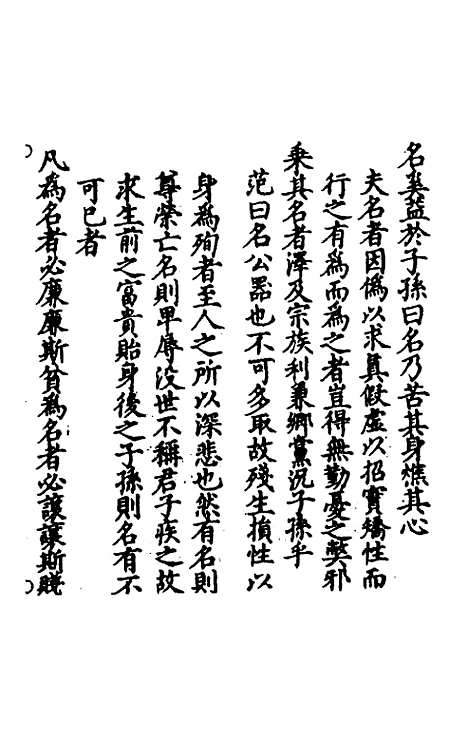 名奚益於子孫曰名乃苦其身燋其心
夫名者因僞以求真假虛以招實矯性而
行之有爲而爲之者豈得無勤憂之弊邪
乘其名者澤及宗族利兼鄉黨況子孫乎
范曰名公器也不可多取故殘生損性以
身爲殉者至人之所以深悲也然有名則
尊榮亡名則卑辱沒世不稱君子疾之故
求生前之富貴貽身後之子孫則名有不
可已者
凡爲名者必廉廉斯貧爲名者必讓讓斯賤